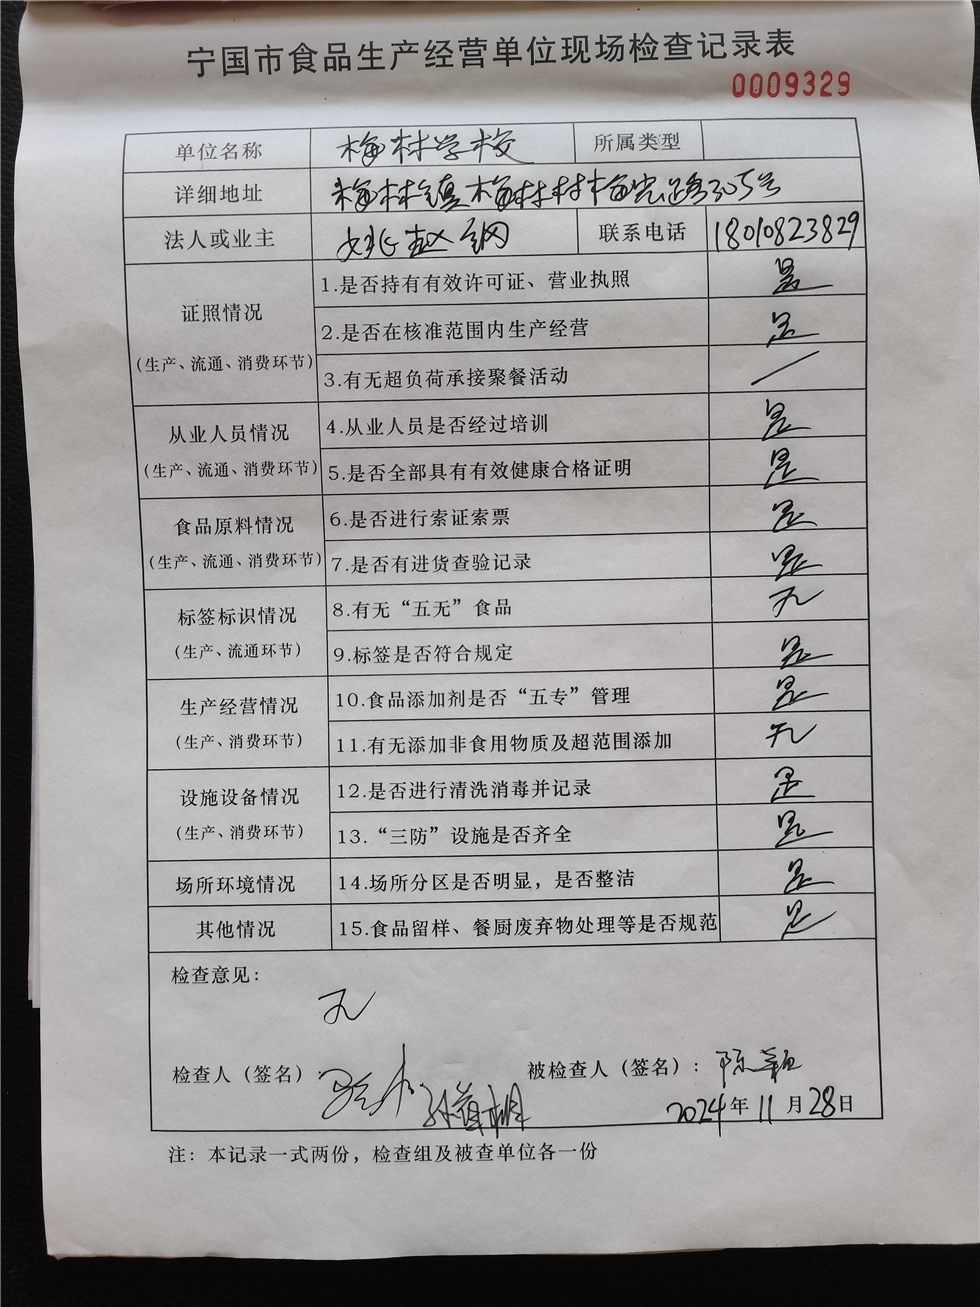 宁国市食品生产经营单位现场检查记录表
0009329
单位名称 梅林学校 所属类型
详细地址 梅林镇梅林村梅岩路305号
法人或业主 姚赵钢 联系电话 18010823829
证照情况
(生产、流通、消费环节)
1.是否持有有效许可证、营业执照 是
2.是否在核准范围内生产经营 是
3.有无超负荷承接聚餐活动 /
从业人员情况
(生产、流通、消费环节)
4.从业人员是否经过培训 是
5.是否全部具有有效健康合格证明 是
食品原料情况
(生产、流通、消费环节)
6.是否进行索证索票 是
7.是否有进货查验记录 是
标签标识情况
(生产、流通环节)
8.有无“五无”食品 无
9.标签是否符合规定 是
生产经营情况
(生产、消费环节)
10.食品添加剂是否“五专”管理 是
11.有无添加非食用物质及超范围添加 无
设施设备情况
(生产、消费环节)
12.是否进行清洗消毒并记录 是
13.“三防”设施是否齐全 是
场所环境情况 14.场所分区是否明显，是否整洁 是
其他情况 15.食品留样、餐厨废弃物处理等是否规范 是
检查意见：
无
检查人（签名）： 被检查人（签名）：陈颖
2024年11月28日
注：本记录一式两份，检查组及被查单位各一份